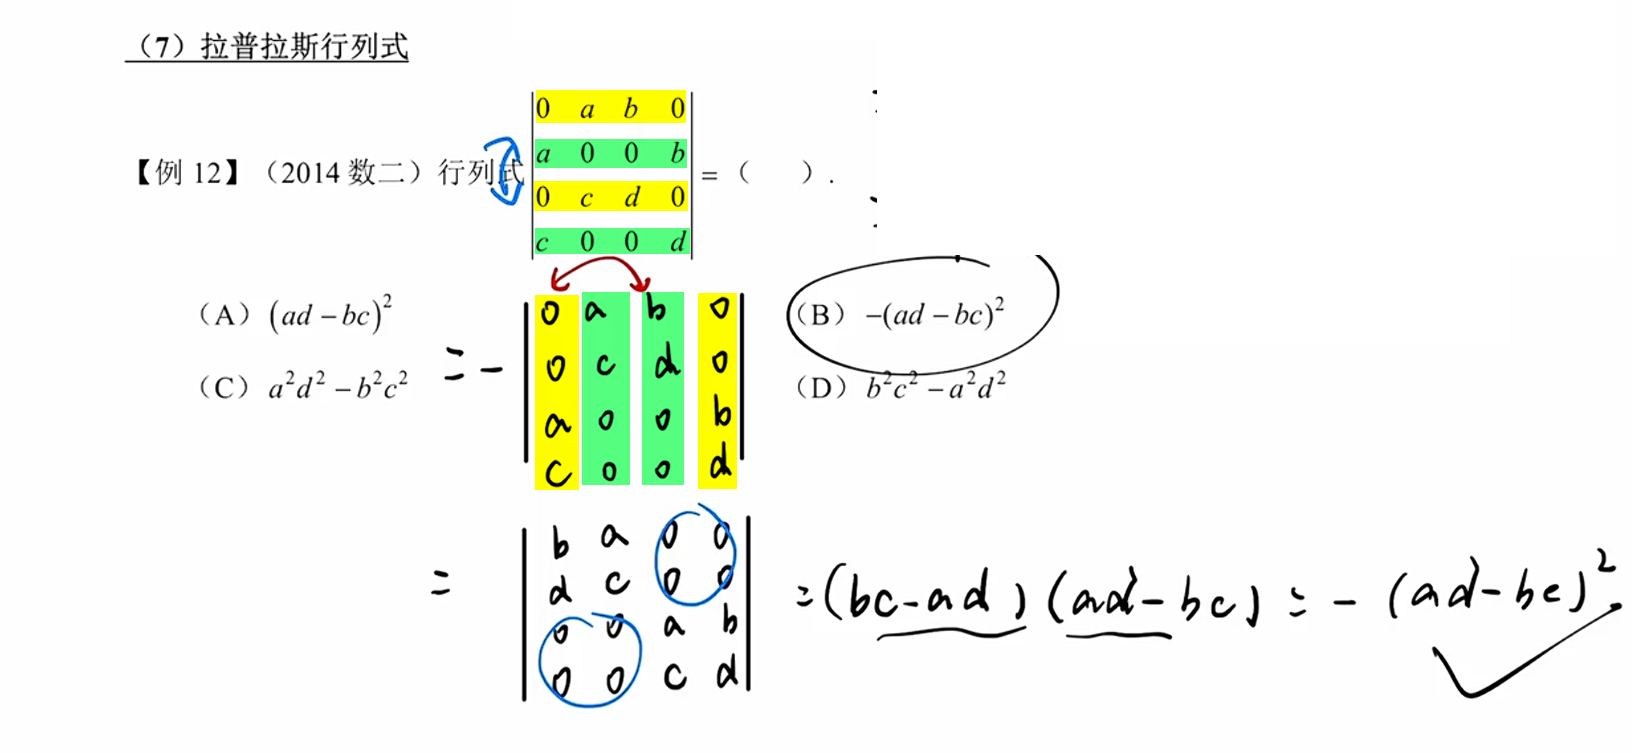 （7）拉普拉斯行列式
0 a b 0
a 0 0 b
【例 12】（2014 数二）行列式 = （  ）.
0 c d 0
c 0 0 d
（A）(ad − bc)² （B）−(ad − bc)²
（C）a²d² − b²c² （D）b²c² − a²d²
= −
0 a b 0
0 c d 0
a 0 0 b
c 0 0 d
=
b a 0 0
d c 0 0
0 0 a b
0 0 c d
= (bc-ad)(ad-bc) = - (ad-bc)²